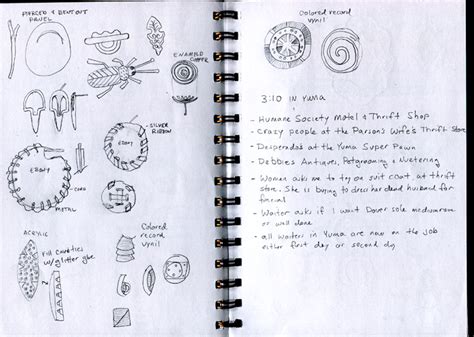 PIERCED & BENT OUT
PANEL
ENAMELED
COPPER
SILVER
RIBBON
EBONY
EBONY
CORD
METAL
ACRYLIC
Fill cavities
w/glitter glue
Colored
record
vynil
Colored record
vynil
3:10 in Yuma
- Humane Society Motel & Thrift Shop
- Crazy people at the Parson's Wife's Thrift Store
- Desperados at the Yuma Super Pawn
- Debbies Antiques, Petgrooming & Nuetering
- Women asks me to try on suit coat at thrift
store. She is trying to dress her dead husband for
funeral
- Waiter asks if I want Dover sole medium rare
or well done
- all waiters in Yuma are now on the job
either first day or second day